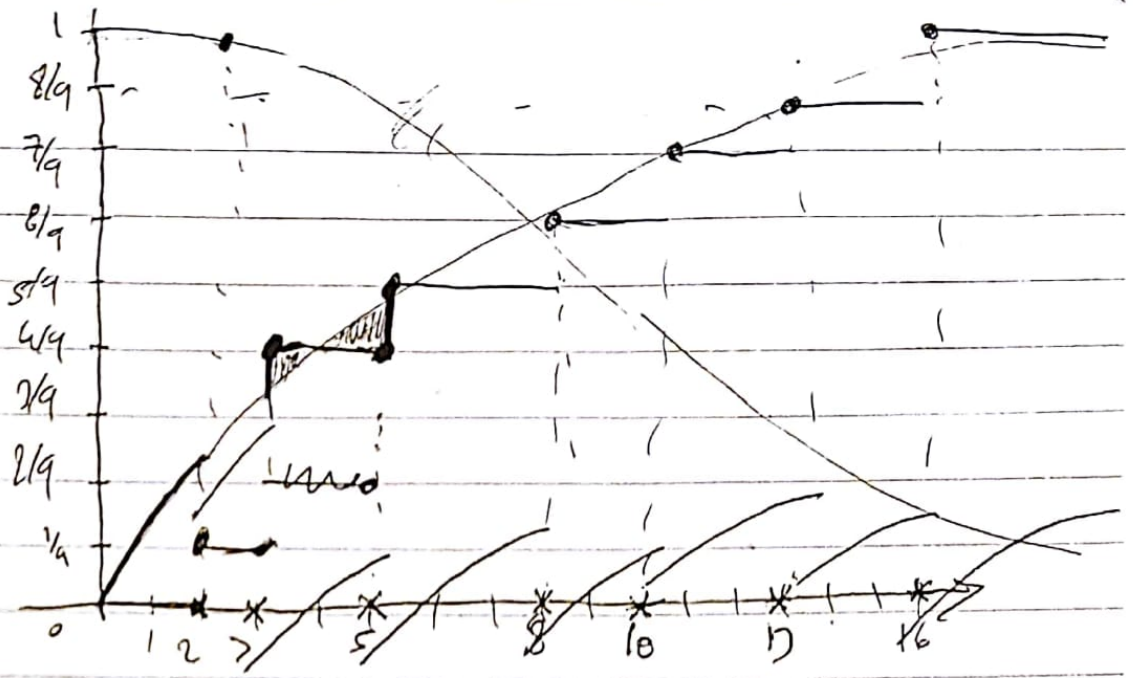 1
8/9
7/9
6/9
5/9
4/9
3/9
2/9
1/9
0 1 2 3 5 8 10 13 16